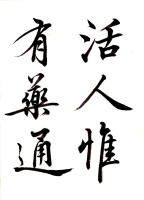 活人惟
有藥通